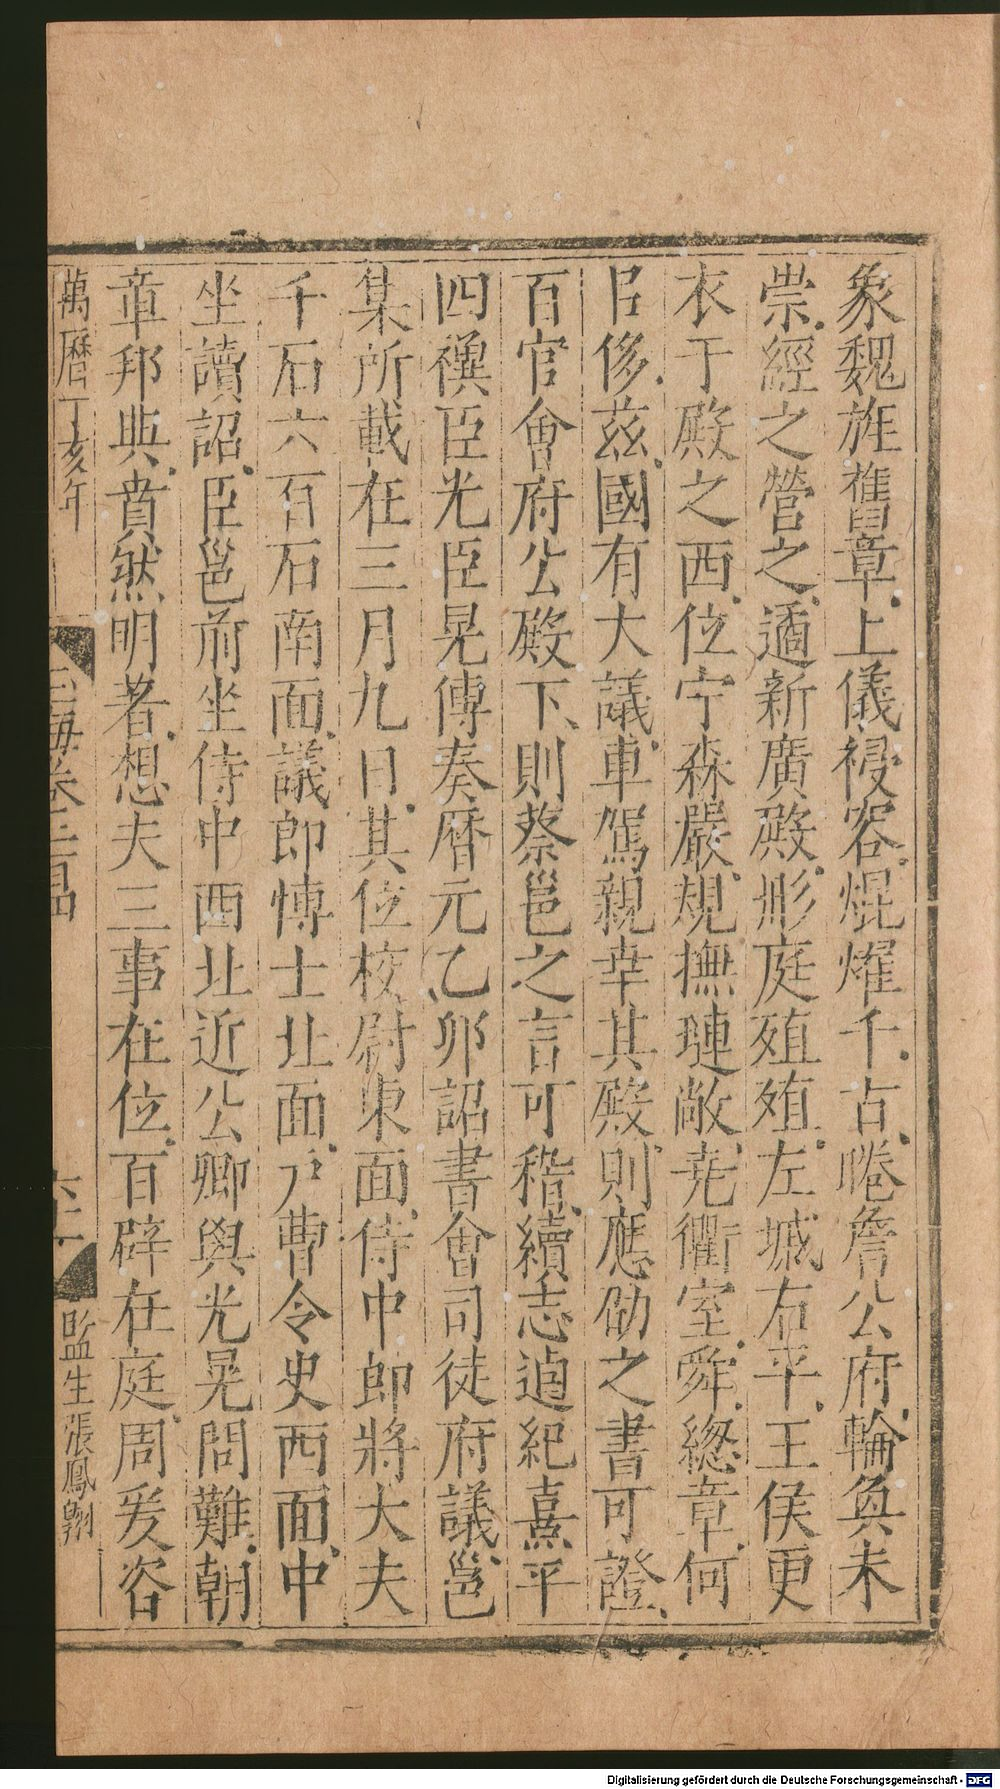 象魏旌舊章上儀祲容焜燿千古睠詹公府輪奐未
崇經之營之遹新廣殿彤庭殖殖左墄右平王侯更
衣于殿之西位宁森嚴規撫璉敞堯衢室舜總章何
㠯侈茲國有大議車駕親幸其殿則應劭之書可證
百官會府公殿下則蔡邕之言可稽續志逌紀熹平
四禩臣光臣晃傳奏曆元乙卯詔書會司徒府議邕
集所載在三月九日其位校尉東面侍中郎將大夫
千石六百石南面議郎博士北面戶曹令史西面中
坐讀詔臣邕前坐侍中西北近公卿與光晃問難朝
章邦典賁然明著想夫三事在位百辟在庭周爰咨
萬曆丁亥年
玉海卷二百四
六十一
監生張鳳翔
Digitalisierung gefördert durch die Deutsche Forschungsgemeinschaft - DFG